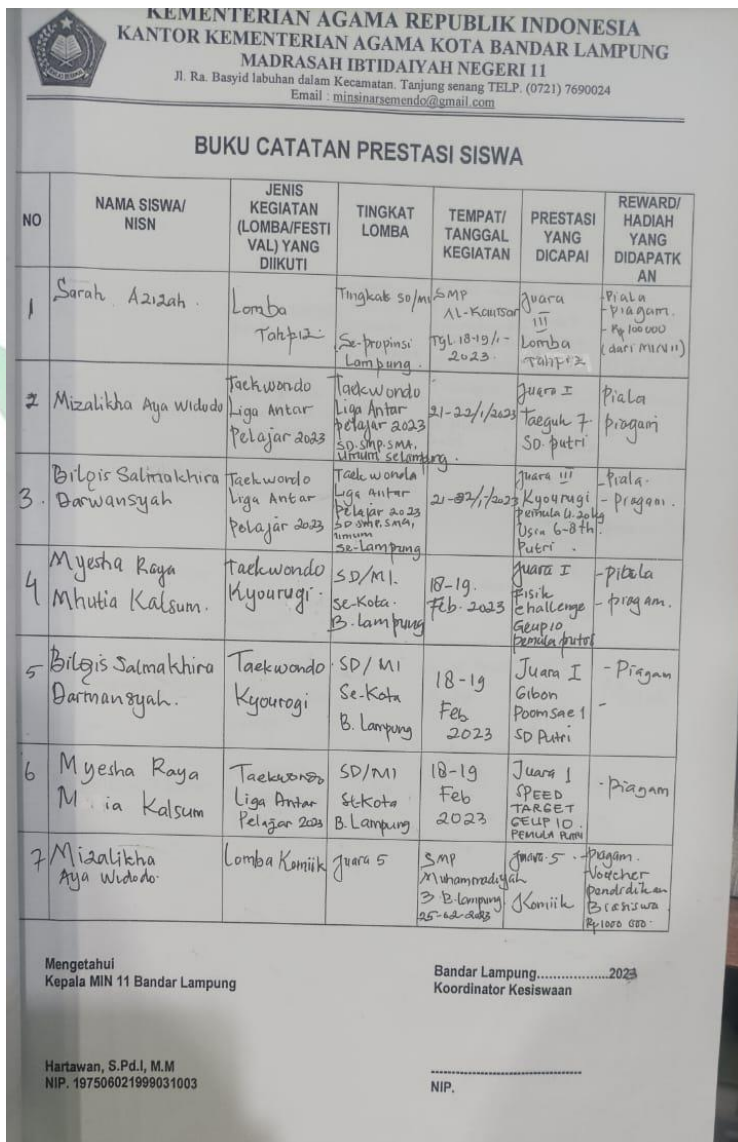 KEMENTERIAN AGAMA REPUBLIK INDONESIA
KANTOR KEMENTERIAN AGAMA KOTA BANDAR LAMPUNG
MADRASAH IBTIDAIYAH NEGERI 11
Jl. Ra. Basyid labuhan dalam Kecamatan. Tanjung senang TELP. (0721) 7690024
Email : minsinarsemendo@gmail.com
BUKU CATATAN PRESTASI SISWA
NO
NAMA SISWA/
NISN
JENIS
KEGIATAN
(LOMBA/FESTI
VAL) YANG
DIIKUTI
TINGKAT
LOMBA
TEMPAT/
TANGGAL
KEGIATAN
PRESTASI
YANG
DICAPAI
REWARD/
HADIAH
YANG
DIDAPATK
AN
1
Sarah Azizah.
Lomba
Tahpiz
Tingkat SD/MI
Se-propinsi
Lampung.
SMP
AL-Kautsar
Tgl. 18-19/1-
2023.
Juara
III
Lomba
Tahpiz
- Piala
- piagam.
- Rp 100 000
(dari MIN 11)
2
Mizalikha Aya Widodo
Taekwondo
Liga Antar
Pelajar 2023
Taekwondo
Liga Antar
pelajar 2023
SD. SMP. SMA.
umum selampung.
21-22/1/2023
Juara I
Taeguk 7
SD. putri
Piala
piagam
3.
Bilqis Salmakhira
Darwansyah
Taekwondo
Liga Antar
Pelajar 2023
Taekwondo
Liga Antar
Pelajar 2023
SD SMP, SMA,
umum
se-Lampung
21-22/1/2023
Juara III
Kyourugi
pemula U.20kg
Usia 6-8th.
Putri.
- Piala.
- Piagam.
4
Myesha Raya
Mhutia Kalsum.
Taekwondo
Kyourugi.
SD/MI.
se-Kota.
B. Lampung
18-19.
Feb. 2023
Juara I
Fisik
challenge
Geup 10
pemula putri
- piala
- piagam.
5
Bilqis Salmakhira
Darmansyah.
Taekwondo
Kyourogi
SD/MI
Se-Kota
B. Lampung
18-19
Feb
2023
Juara I
Gibon
Poomsae 1
SD Putri
- Piagam
-
6
Myesha Raya
M ia Kalsum
Taekwondo
Liga Antar
Pelajar 2023
SD/MI
Se-Kota
B. Lampung
18-19
Feb
2023
Juara 1
SPEED
TARGET
GEUP 10.
PEMULA PUTRI
- Piagam
7
Mizalikha
Aya Widodo.
Lomba Komiik
Juara 5
SMP
Muhammadiyah
3 B. Lampung
25-02-2023
Juara 5
Komiik
- piagam.
Voucher
pendidikan
Rp 1000 000.
Mengetahui
Kepala MIN 11 Bandar Lampung
Bandar Lampung..................2023
Koordinator Kesiswaan
Hartawan, S.Pd.I, M.M
NIP. 197506021999031003
NIP.